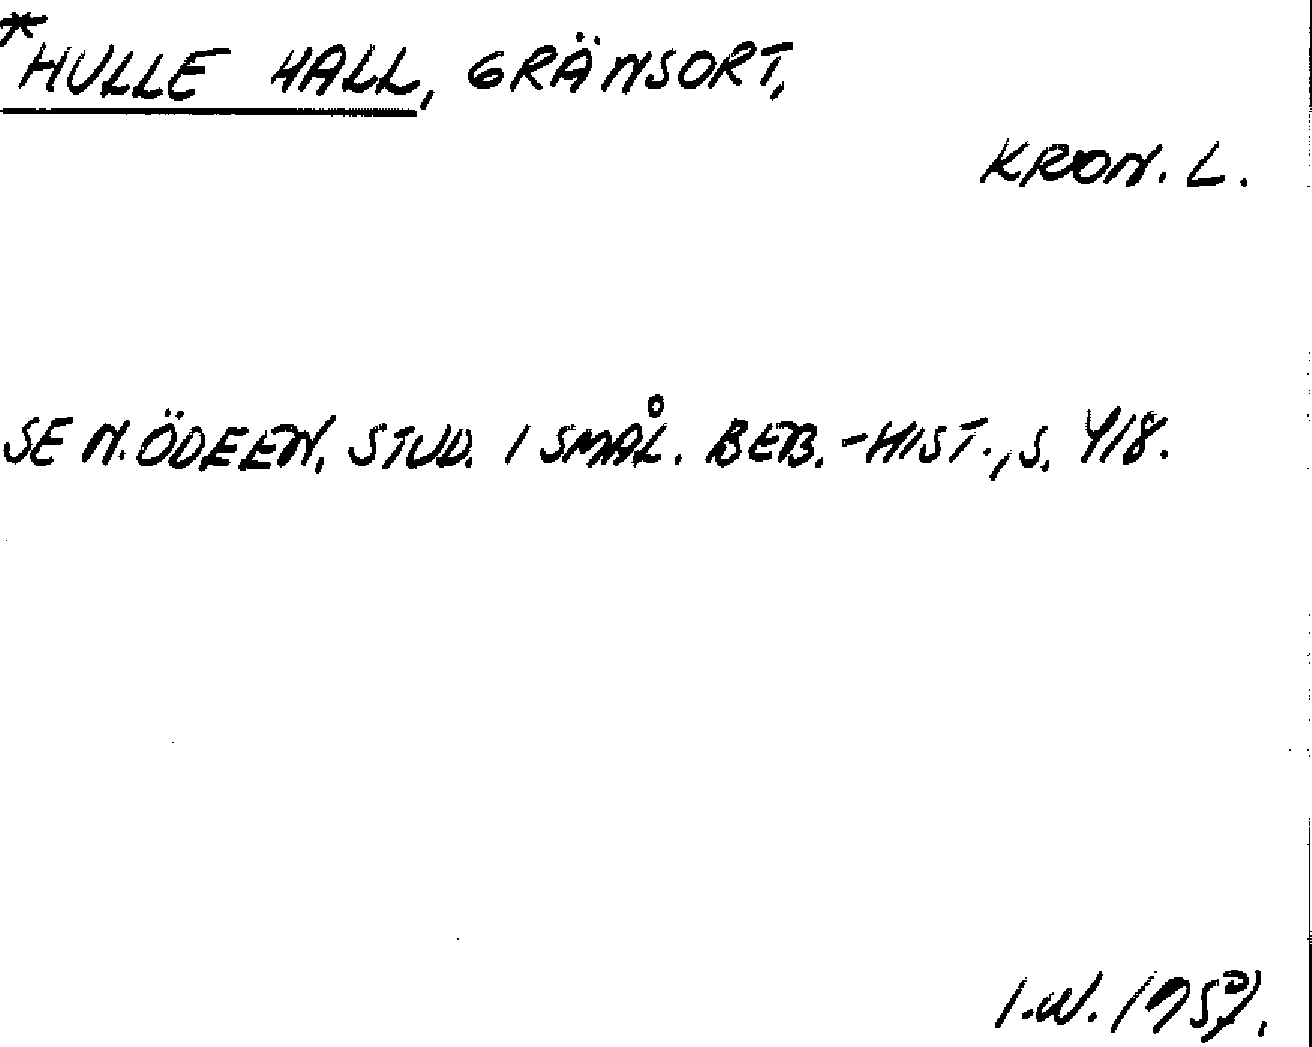 *HULLE HALL, GRÄNSORT,
KRON. L.
SE N. ÖDEEN, STUD. I SMÅL. BEB.-HIST., S. 418.
I.W.